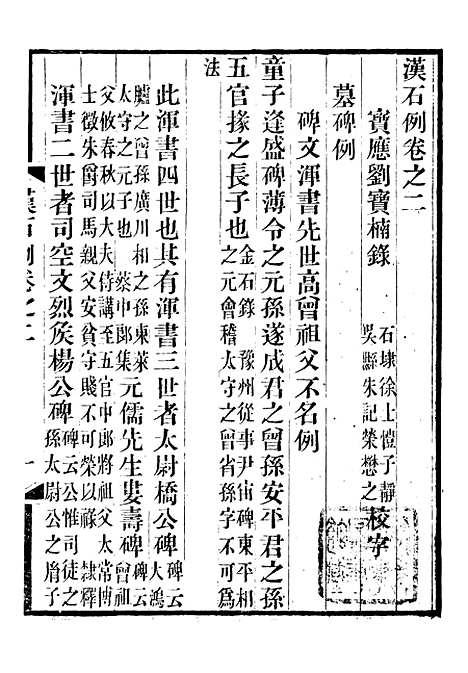 漢石例卷之二
寶應劉寶楠錄
石埭徐士愷子靜
吳縣朱記榮懋之
校字
墓碑例
碑文渾書先世高曾祖父不名例
童子逢盛碑薄令之元孫遂成君之曾孫安平君之孫
五官掾之長子也
金石錄 豫州從事尹宙碑東平相
之元會稽太守之曾省孫字不可爲
法
此渾書四世也其有渾書三世者太尉橋公碑
碑云
大鴻
臚之曾孫廣川相之孫東萊
太守之元子也 蔡中郎集
元儒先生婁壽碑
碑云
曾祖
父攸春秋以大夫侍講至五官中郎將祖父太常博
士徵朱爵司馬親父安貧守賤不可榮以祿 隸釋
渾書二世者司空文烈矦楊公碑
碑云公惟司徒之
孫太尉公之胤子
漢石例卷之二
一